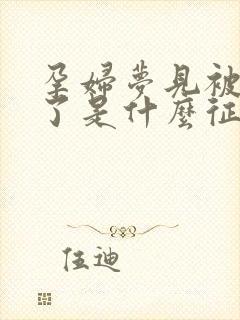 孕婦夢見被
了是什麼征
伍迪